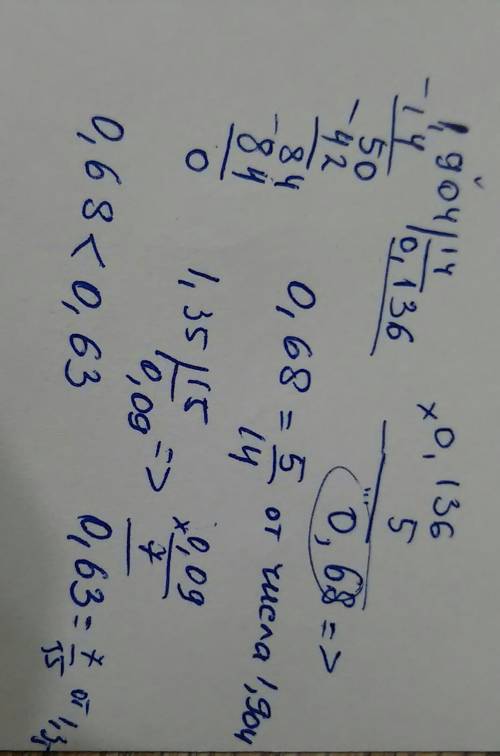 1,904 | 14
-14 0,136
50
-42
84
-84
0
×0,136
5
0,68 =>
0,68 = 5/14 от числа 1,904
1,35 | 15
0,09 =>
×0,09
7
0,63 = 7/15 от 1,35
0,68 < 0,63